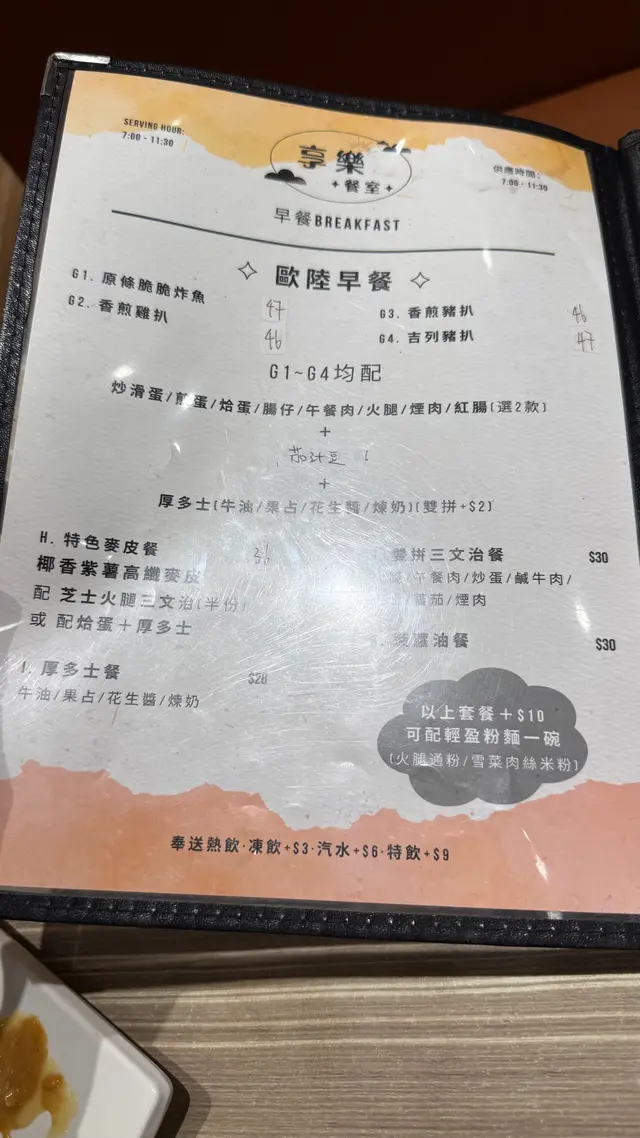 SERVING HOUR:
7:00 - 11:30
享樂
餐室
供應時間:
7:00 - 11:30
早餐BREAKFAST
歐陸早餐
G1. 原條脆脆炸魚 47
G2. 香煎雞扒 46
G3. 香煎豬扒 46
G4. 吉列豬扒 47
G1~G4均配
炒滑蛋/煎蛋/烚蛋/腸仔/午餐肉/火腿/煙肉/紅腸(選2款)
+
茄汁豆
+
厚多士(牛油/果占/花生醬/煉奶)(雙拼+$2)
H. 特色麥皮餐
椰香紫薯高纖麥皮
配 芝士火腿三文治(半份)
或 配烚蛋+厚多士
I. 厚多士餐 $28
牛油/果占/花生醬/煉奶
雙拼三文治餐 $30
/午餐肉/炒蛋/鹹牛肉/
蕃茄/煙肉
菠蘿油餐 $30
以上套餐+$10
可配輕盈粉麵一碗
(火腿通粉/雪菜肉絲米粉)
奉送熱飲·凍飲+$3·汽水+$6·特飲+$9